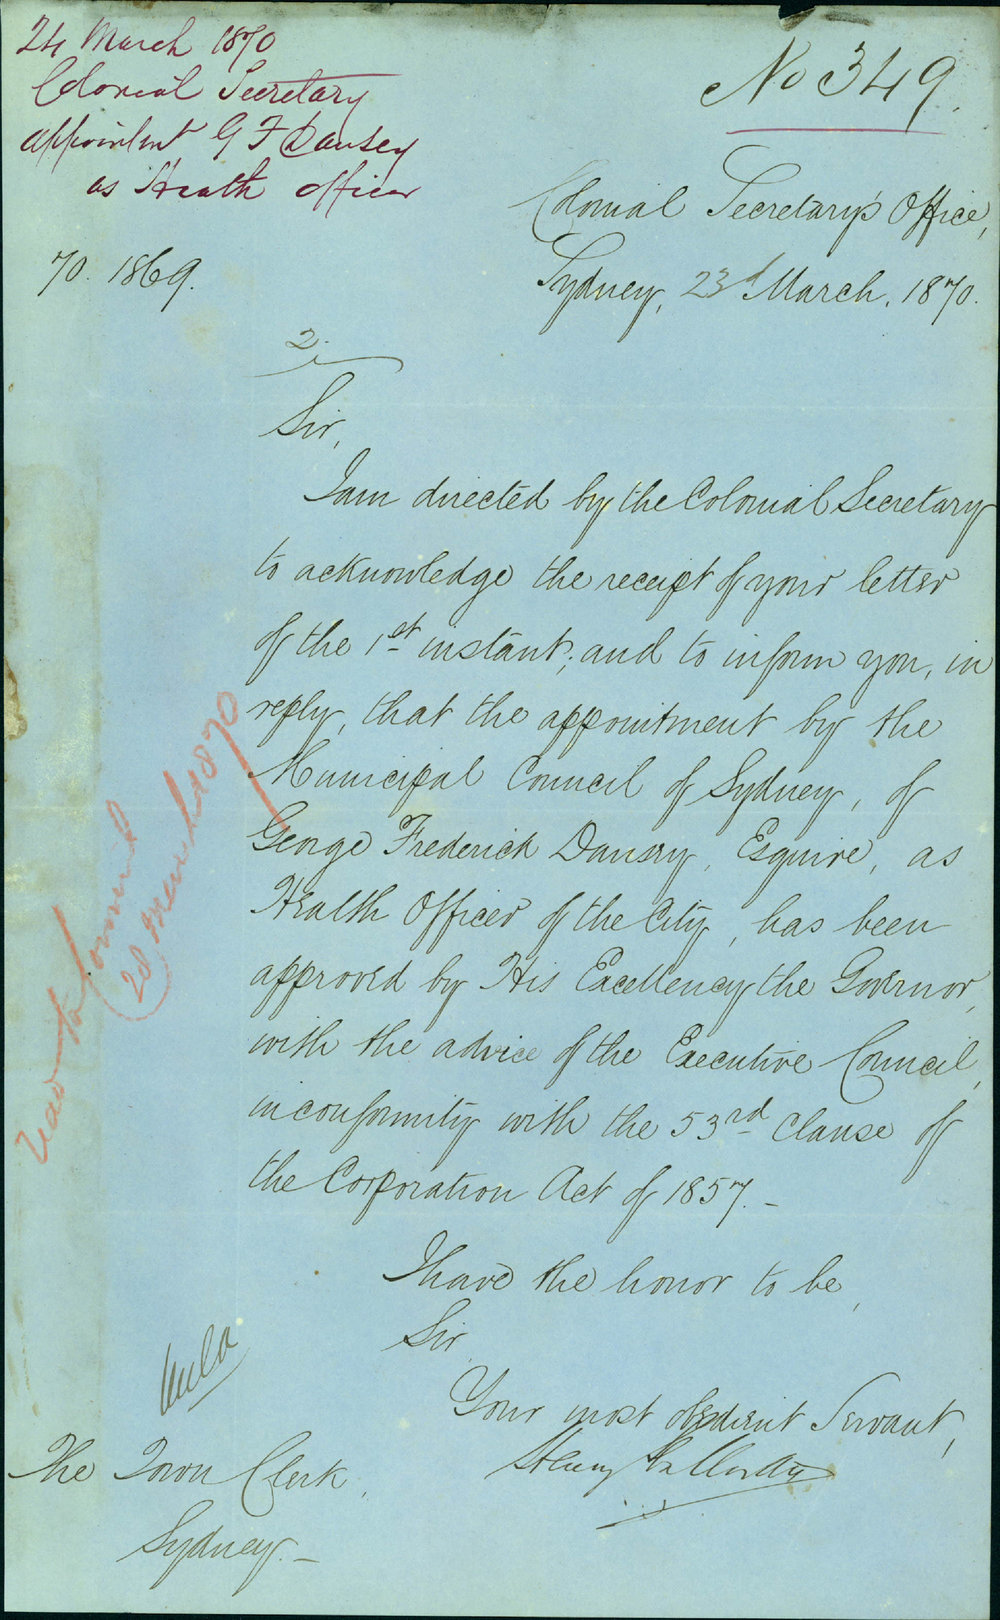 24 March 1870
Colonial Secretary
appointmt G F Dansey
as Health officer
No 349.
Colonial Secretary's Office,
Sydney, 23d March, 1870.
70. 1869.
2.
Sir,
I am directed by the Colonial Secretary
to acknowledge the receipt of your letter
of the 1st instant; and to inform you, in
reply, that the appointment by the
Municipal Council of Sydney, of
George Frederick Dansey, Esquire, as
Health Officer of the City, has been
approved by His Excellency the Governor,
with the advice of the Executive Council,
in conformity with the 53rd clause of
the Corporation Act of 1857. –
I have the honor to be,
Sir,
Your most obedient Servant,
Henry Halloran
The Town Clerk,
Sydney. –
Council
28 March 1870